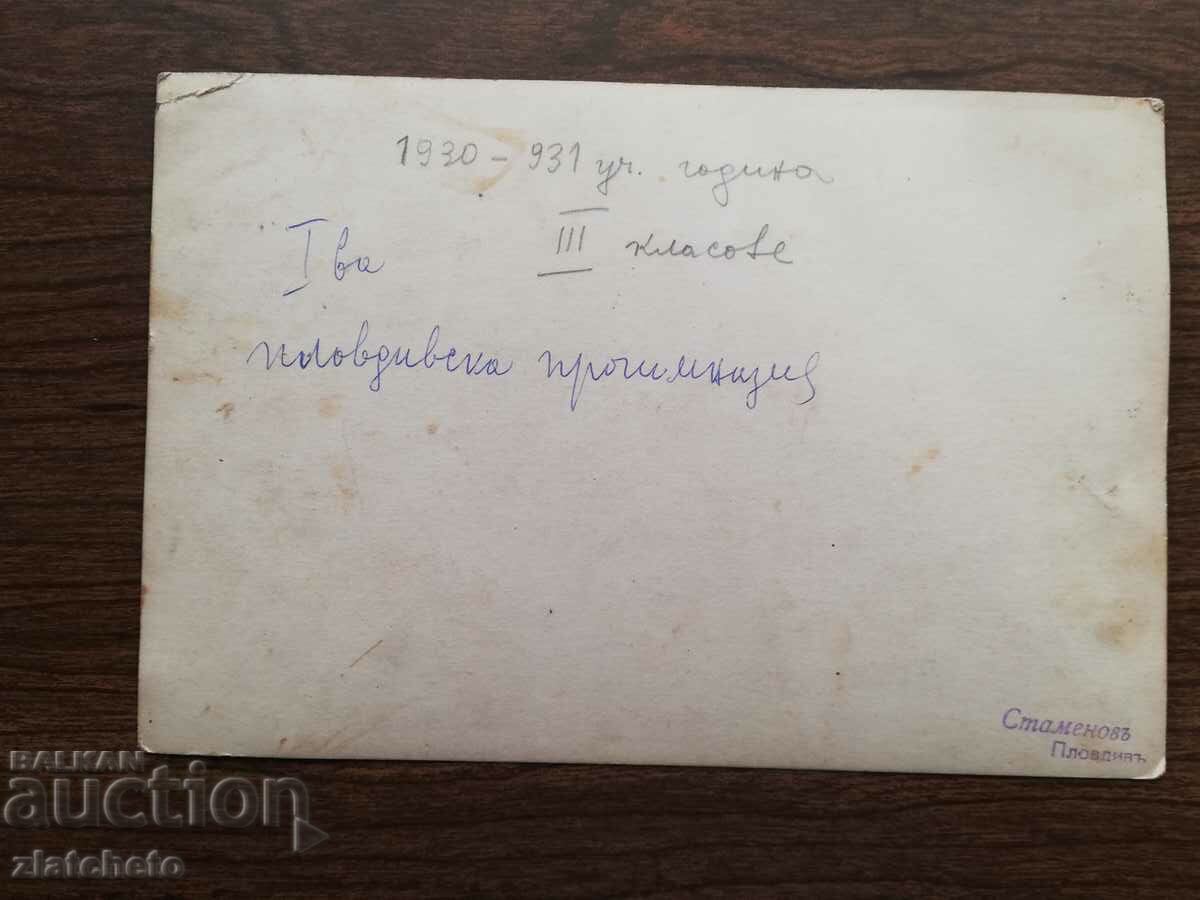 1930 - 931 уч. година
III класове
I ва
пловдивска прогимназия
Стаменовъ
Пловдивъ
BALKAN
auction
zlatcheto